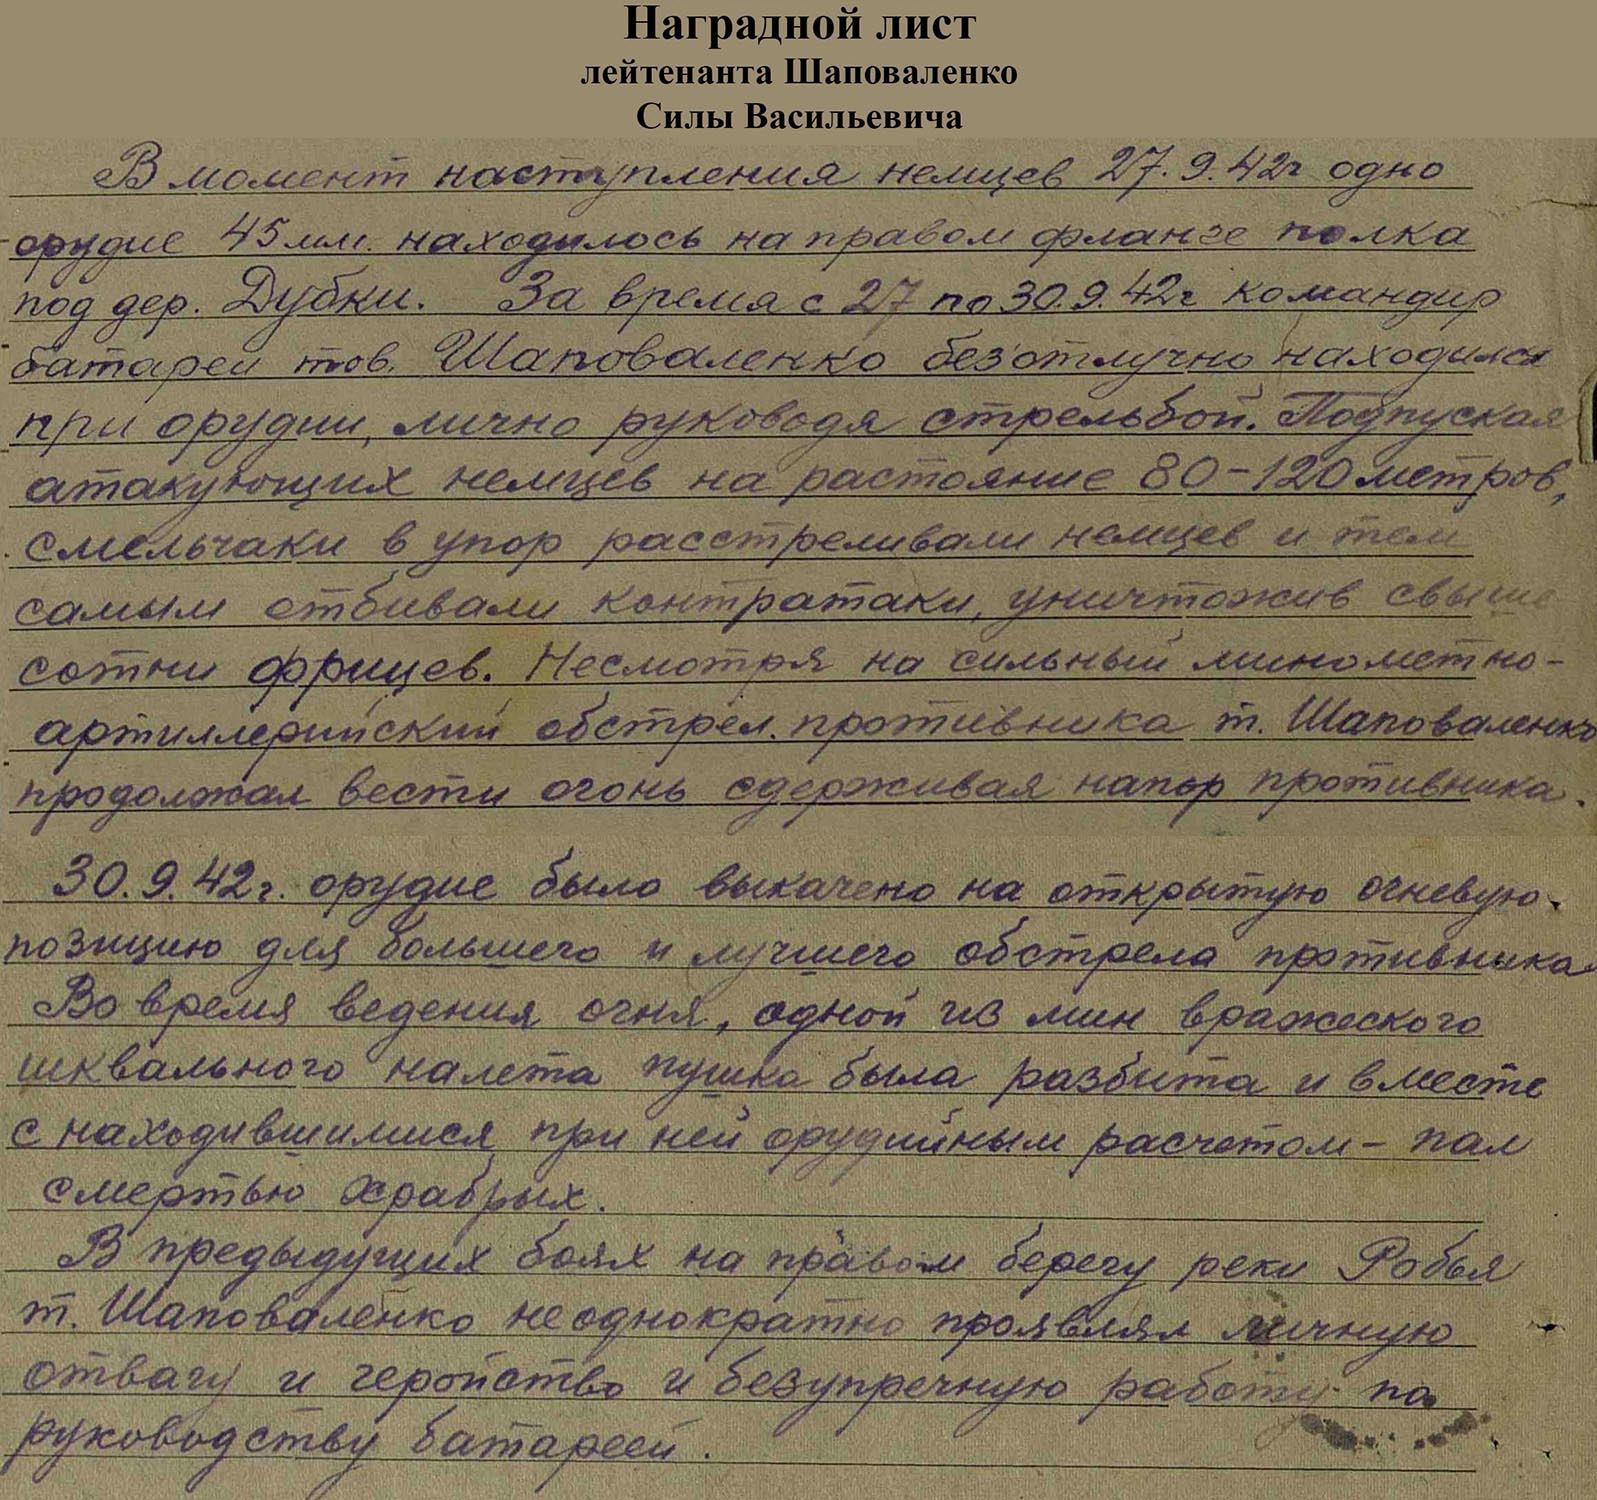 Наградной лист
лейтенанта Шаповаленко
Силы Васильевича
В момент наступления немцев 27.9.42г одно
орудие 45 мм. находилось на правом фланге полка
под дер. Дубки. За время с 27 по 30.9.42г командир
батареи тов. Шаповаленко безотлучно находился
при орудии, лично руководя стрельбой. Подпуская
атакующих немцев на растояние 80-120 метров,
смельчаки в упор расстреливали немцев и тем
самым отбивали контратаки, уничтожив свыше
сотни фрицев. Несмотря на сильный минометно-
артиллерийский обстрел противника т. Шаповаленко
продолжал вести огонь сдерживая напор противника.
30.9.42г. орудие было выкачено на открытую огневую
позицию для большего и лучшего обстрела противника
Во время ведения огня, одной из мин вражеского
шквального налета пушка была разбита и вместе
с находившимися при ней орудийным расчетом - пал
смертью храбрых.
В предыдущих боях на правом берегу реки Робья
т. Шаповаленко неоднократно проявлял личную
отвагу и геройство и безупречную работу по
руководству батареей.